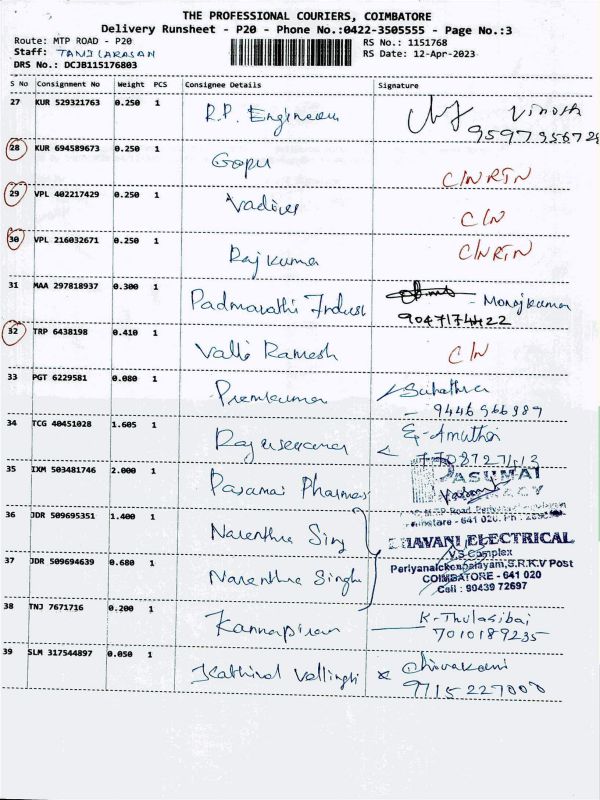 THE PROFESSIONAL COURIERS, COIMBATORE
Delivery Runsheet - P20 - Phone No.:0422-3505555 - Page No.:3
Route: MTP ROAD - P20
RS No.: 1151768
Staff: TAMILARASAN
RS Date: 12-Apr-2023
DRS No.: DCJB115176803
S No Consignment No Weight PCS Consignee Details Signature
27 KUR 529321763 0.250 1 R.P. Engineers Vinoth
28 KUR 694589673 0.250 1 Gopu C/N RTN
29 VPL 402217429 0.250 1 Vadivel C/N
30 VPL 216032671 0.250 1 Rajkumar C/N RTN
31 MAA 297818937 0.300 1 Padmavathi Indust - Manojkumar
9047174422
32 TRP 6438198 0.410 1 Valli Ramesh C/N
33 PGT 6229581 0.080 1 Premkumar
34 TCG 40451028 1.605 1
35 IXM 503481746 2.000 1 Pasumai Pharmacy PASUMAI
36 JDR 509695351 1.400 1 Narenthra Sing
BHAVANI ELECTRICAL
V.S Complex
37 JDR 509694639 0.680 1 Narenthra Singh Periyanaickenpalayam,S.R.K.V Post
COIMBATORE - 641 020
Cell : 90439 72697
38 TNJ 7671716 0.200 1 Kannapiran K-Thulasibai
7010189235
39 SLM 317544897 0.050 1
9715227000